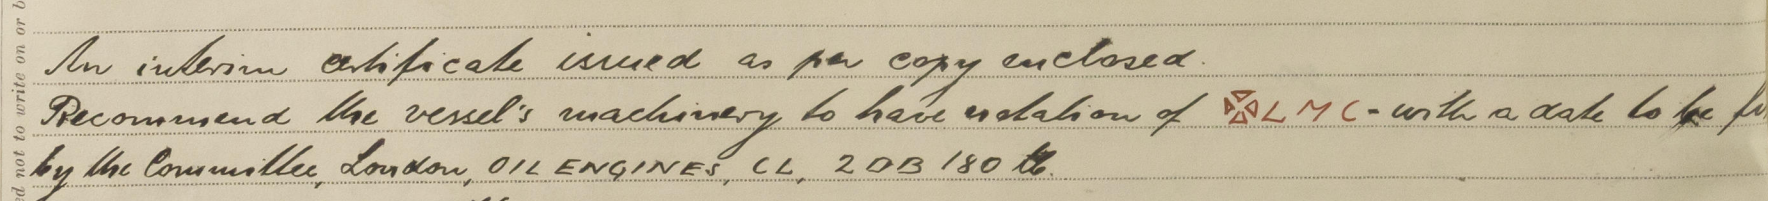 An interim certificate issued as per copy enclosed.
Recommend the vessel's machinery to have notation of ✠ LMC - with a date to be
by the Committee, London, OIL ENGINES, CL, 2DB 180 lb.
ed not to write on or b